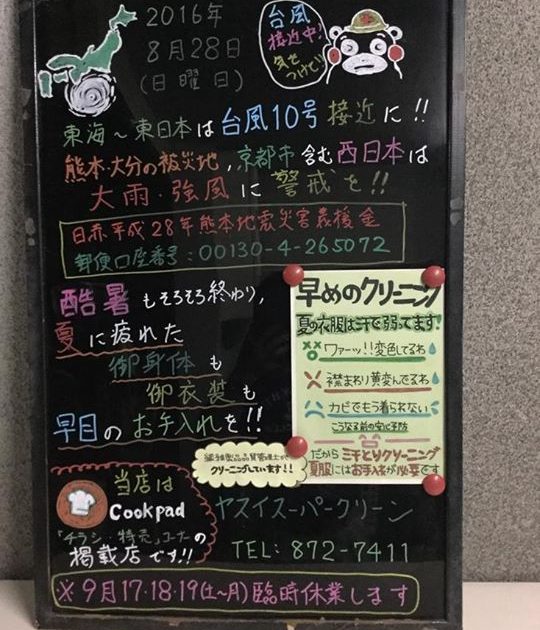 2016年
8月28日
(日曜日)
台風
接近中!
気をつけて!!
東海～東日本は台風10号接近に!!
熊本・大分の被災地,京都市含む西日本は
大雨・強風に警戒を!!
日赤平成28年熊本地震災害義援金
郵便口座番号:00130-4-265072
酷暑もそろそろ終わり,
夏に疲れた
御身体も
御衣装も
早目のお手入れを!!
早めのクリーニング
夏の衣服は汗で弱ってます!
ワァーッ!!変色してるわ
襟まわり黄変んでるわ
カビでもう着られない
こうなる前の
だから 汗とりクリーニング
夏服にはお手入れが必要です
繊維製品品質管理士が
クリーニングしています!!
当店は
Cookpad
「チラシ・特売」コーナーの
掲載店です!!
ヤスイスーパークリーン
TEL: 872-7411
※9月17・18・19(土～月)臨時休業します